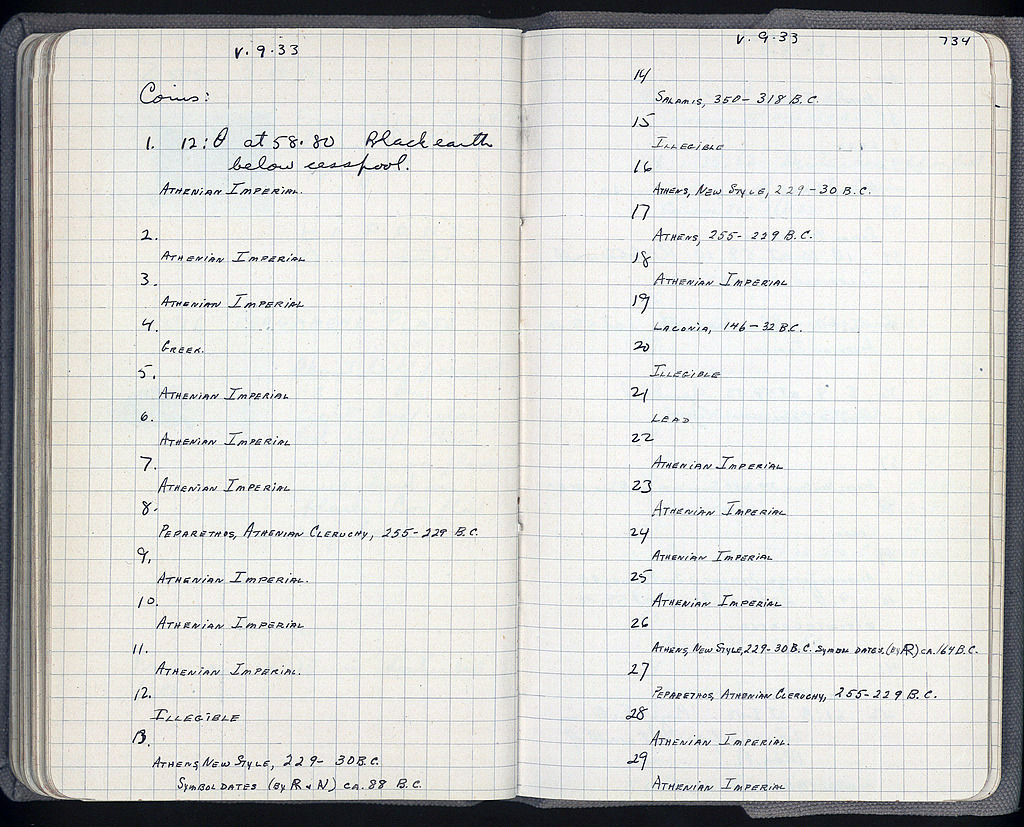 V.9.33
Coins:
1. 12:Θ at 58.80 Black earth
below cesspool.
ATHENIAN IMPERIAL.
2.
ATHENIAN IMPERIAL
3.
ATHENIAN IMPERIAL
4.
GREEK.
5.
ATHENIAN IMPERIAL
6.
ATHENIAN IMPERIAL
7.
ATHENIAN IMPERIAL
8.
PEPARETHOS, ATHENIAN CLERUCHY, 255-229 B.C.
9.
ATHENIAN IMPERIAL.
10.
ATHENIAN IMPERIAL
11.
ATHENIAN IMPERIAL.
12.
ILLEGIBLE
13.
ATHENS NEW STYLE, 229-30 B.C.
SYMBOL DATES (BY R & N) CA. 88 B.C.
V.9.33 734
14
SALAMIS, 350-318 B.C.
15
ILLEGIBLE
16
ATHENS, NEW STYLE, 229-30 B.C.
17
ATHENS, 255-229 B.C.
18
ATHENIAN IMPERIAL
19
LACONIA, 146-32 B.C.
20
ILLEGIBLE
21
LEAD
22
ATHENIAN IMPERIAL
23
ATHENIAN IMPERIAL
24
ATHENIAN IMPERIAL
25
ATHENIAN IMPERIAL
26
ATHENS, NEW STYLE, 229-30 B.C. SYMBOL DATES (BY Æ) CA. 164 B.C.
27
PEPARETHOS, ATHENIAN CLERUCHY, 255-229 B.C.
28
ATHENIAN IMPERIAL.
29
ATHENIAN IMPERIAL